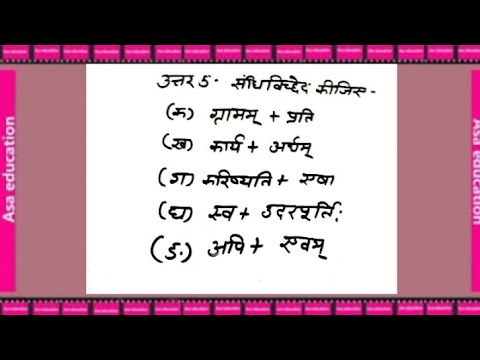 उत्तर 5. संधिविच्छेद कीजिए -
(क) ग्रामम् + प्रति
(ख) कार्य + अर्थम्
(ग) करिष्यति + एषा
(घ) स्व + उदरपूर्तिः
(ङ.) अपि + एवम्
Asa education
Asa education